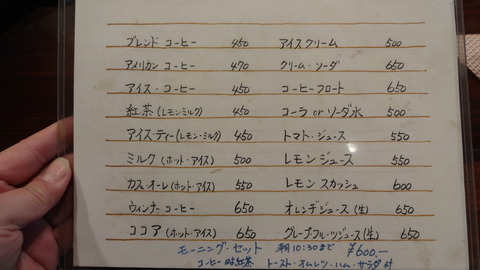 ブレンド コーヒー 450 アイスクリーム 500
アメリカン コーヒー 470 クリーム・ソーダ 650
アイス・コーヒー 450 コーヒーフロート 650
紅茶(レモン・ミルク) 450 コーラ or ソーダ水 500
アイス・ティー(レモン・ミルク) 450 トマト・ジュース 550
ミルク(ホット・アイス) 500 レモンジュース 550
カフェ・オーレ(ホット・アイス) 550 レモン スカッシュ 600
ウィンナーコーヒー 650 オレンヂジュース(生) 650
ココア(ホット・アイス) 650 グレープフルーツジュース(生) 650
モーニング・セット 朝10:30まで ¥600.-
コーヒー or 紅茶 トースト・オムレツ・ハム・サラダ付